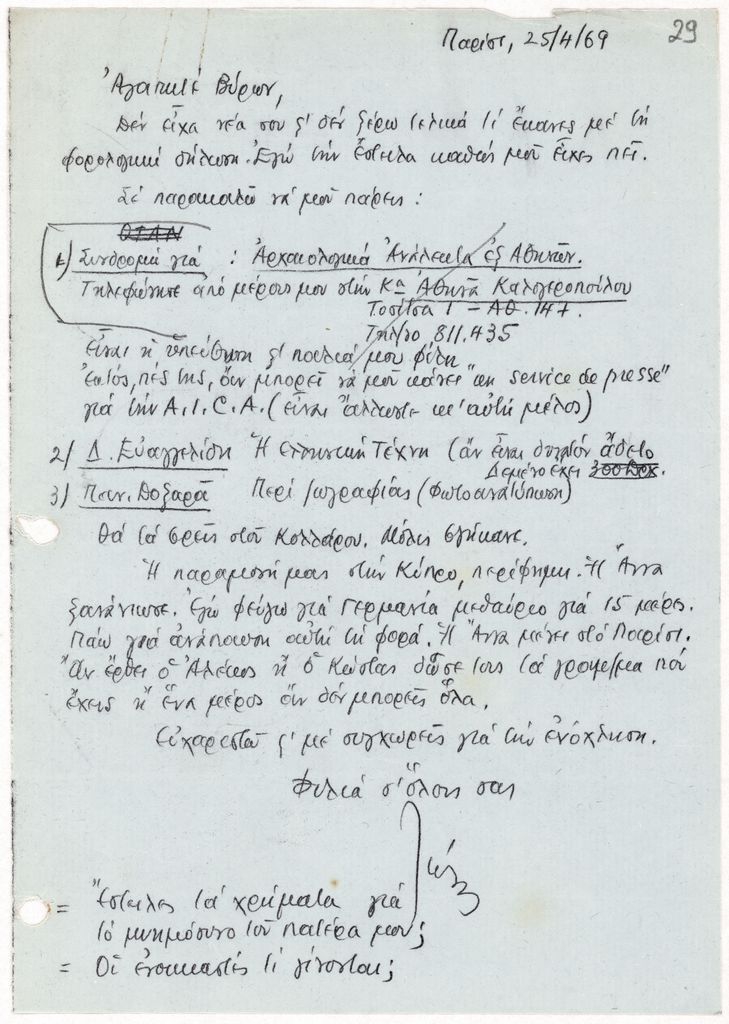 29
Παρίσι, 25/4/69
Ἀγαπητέ Βύρων,
Δέν εἶχα νέα σου κ' δέν ξέρω τελικά τί ἔκανες μέ τή
φορολογική δήλωση. Ἐγώ τήν ἔστειλα καθώς μοῦ εἶχες πεῖ.
Σέ παρακαλῶ νά μοῦ πάρεις :
1) Συνδρομή γιά : Ἀρχαιολογικά Ἀνάλεκτα ἐξ Ἀθηνῶν.
Τηλεφώνησε ἀπό μέρους μου στήν Κα Ἀθηνᾶ Καλογεροπούλου
Τοσίτσα 1 – Ἀθ. 147.
Τηλ/νο 811.435
εἶναι ἡ ὑπεύθυνη κ' παλιά μου φίλη
Ἐκτός, πές της, ἄν μπορεῖ νά μοῦ κάνει "un service de presse"
γιά τήν A.I.C.A. (εἶναι ἄλλωστε κι' αὐτή μέλος)
2) Δ. Εὐαγγελίδη Ἡ ἑλληνική Τέχνη (ἄν εἶναι δυνατόν ἄδετο
Δεμένο ἔχει 300 δρχ.
3) Παν. Δοξαρᾶ Περί ζωγραφίας (φωτοανατύπωση)
Θά τά βρεῖς στοῦ Κολλάρου. Μόλις βγήκανε.
Ἡ παραμονή μας στήν Κύπρο, περίφημη. Ἡ Ἄννα
ξανάνιωσε. Ἐγώ φεύγω γιά Γερμανία μεθαύριο γιά 15 μέρες.
Πάω γιά ἀνάπαυση αὐτή τή φορά. Ἡ Ἄννα μένει στό Παρίσι.
Ἄν ἔρθει ὁ Ἀλέκος ἤ ὁ Κώστας δῶσε τους τά γραμ/μα πού
ἔχεις ἤ ἕνα μέρος ἄν δέν μπορεῖς ὅλα.
Εὐχαριστῶ κ' μέ συγχωρεῖς γιά τήν ἐνόχληση.
Φιλιά σ' ὅλους σας
= Ἔστειλες τά χρήματα γιά
τό μνημόσυνο τοῦ πατέρα μου;
= Οἱ ἐνοικιαστές τί γίνονται;